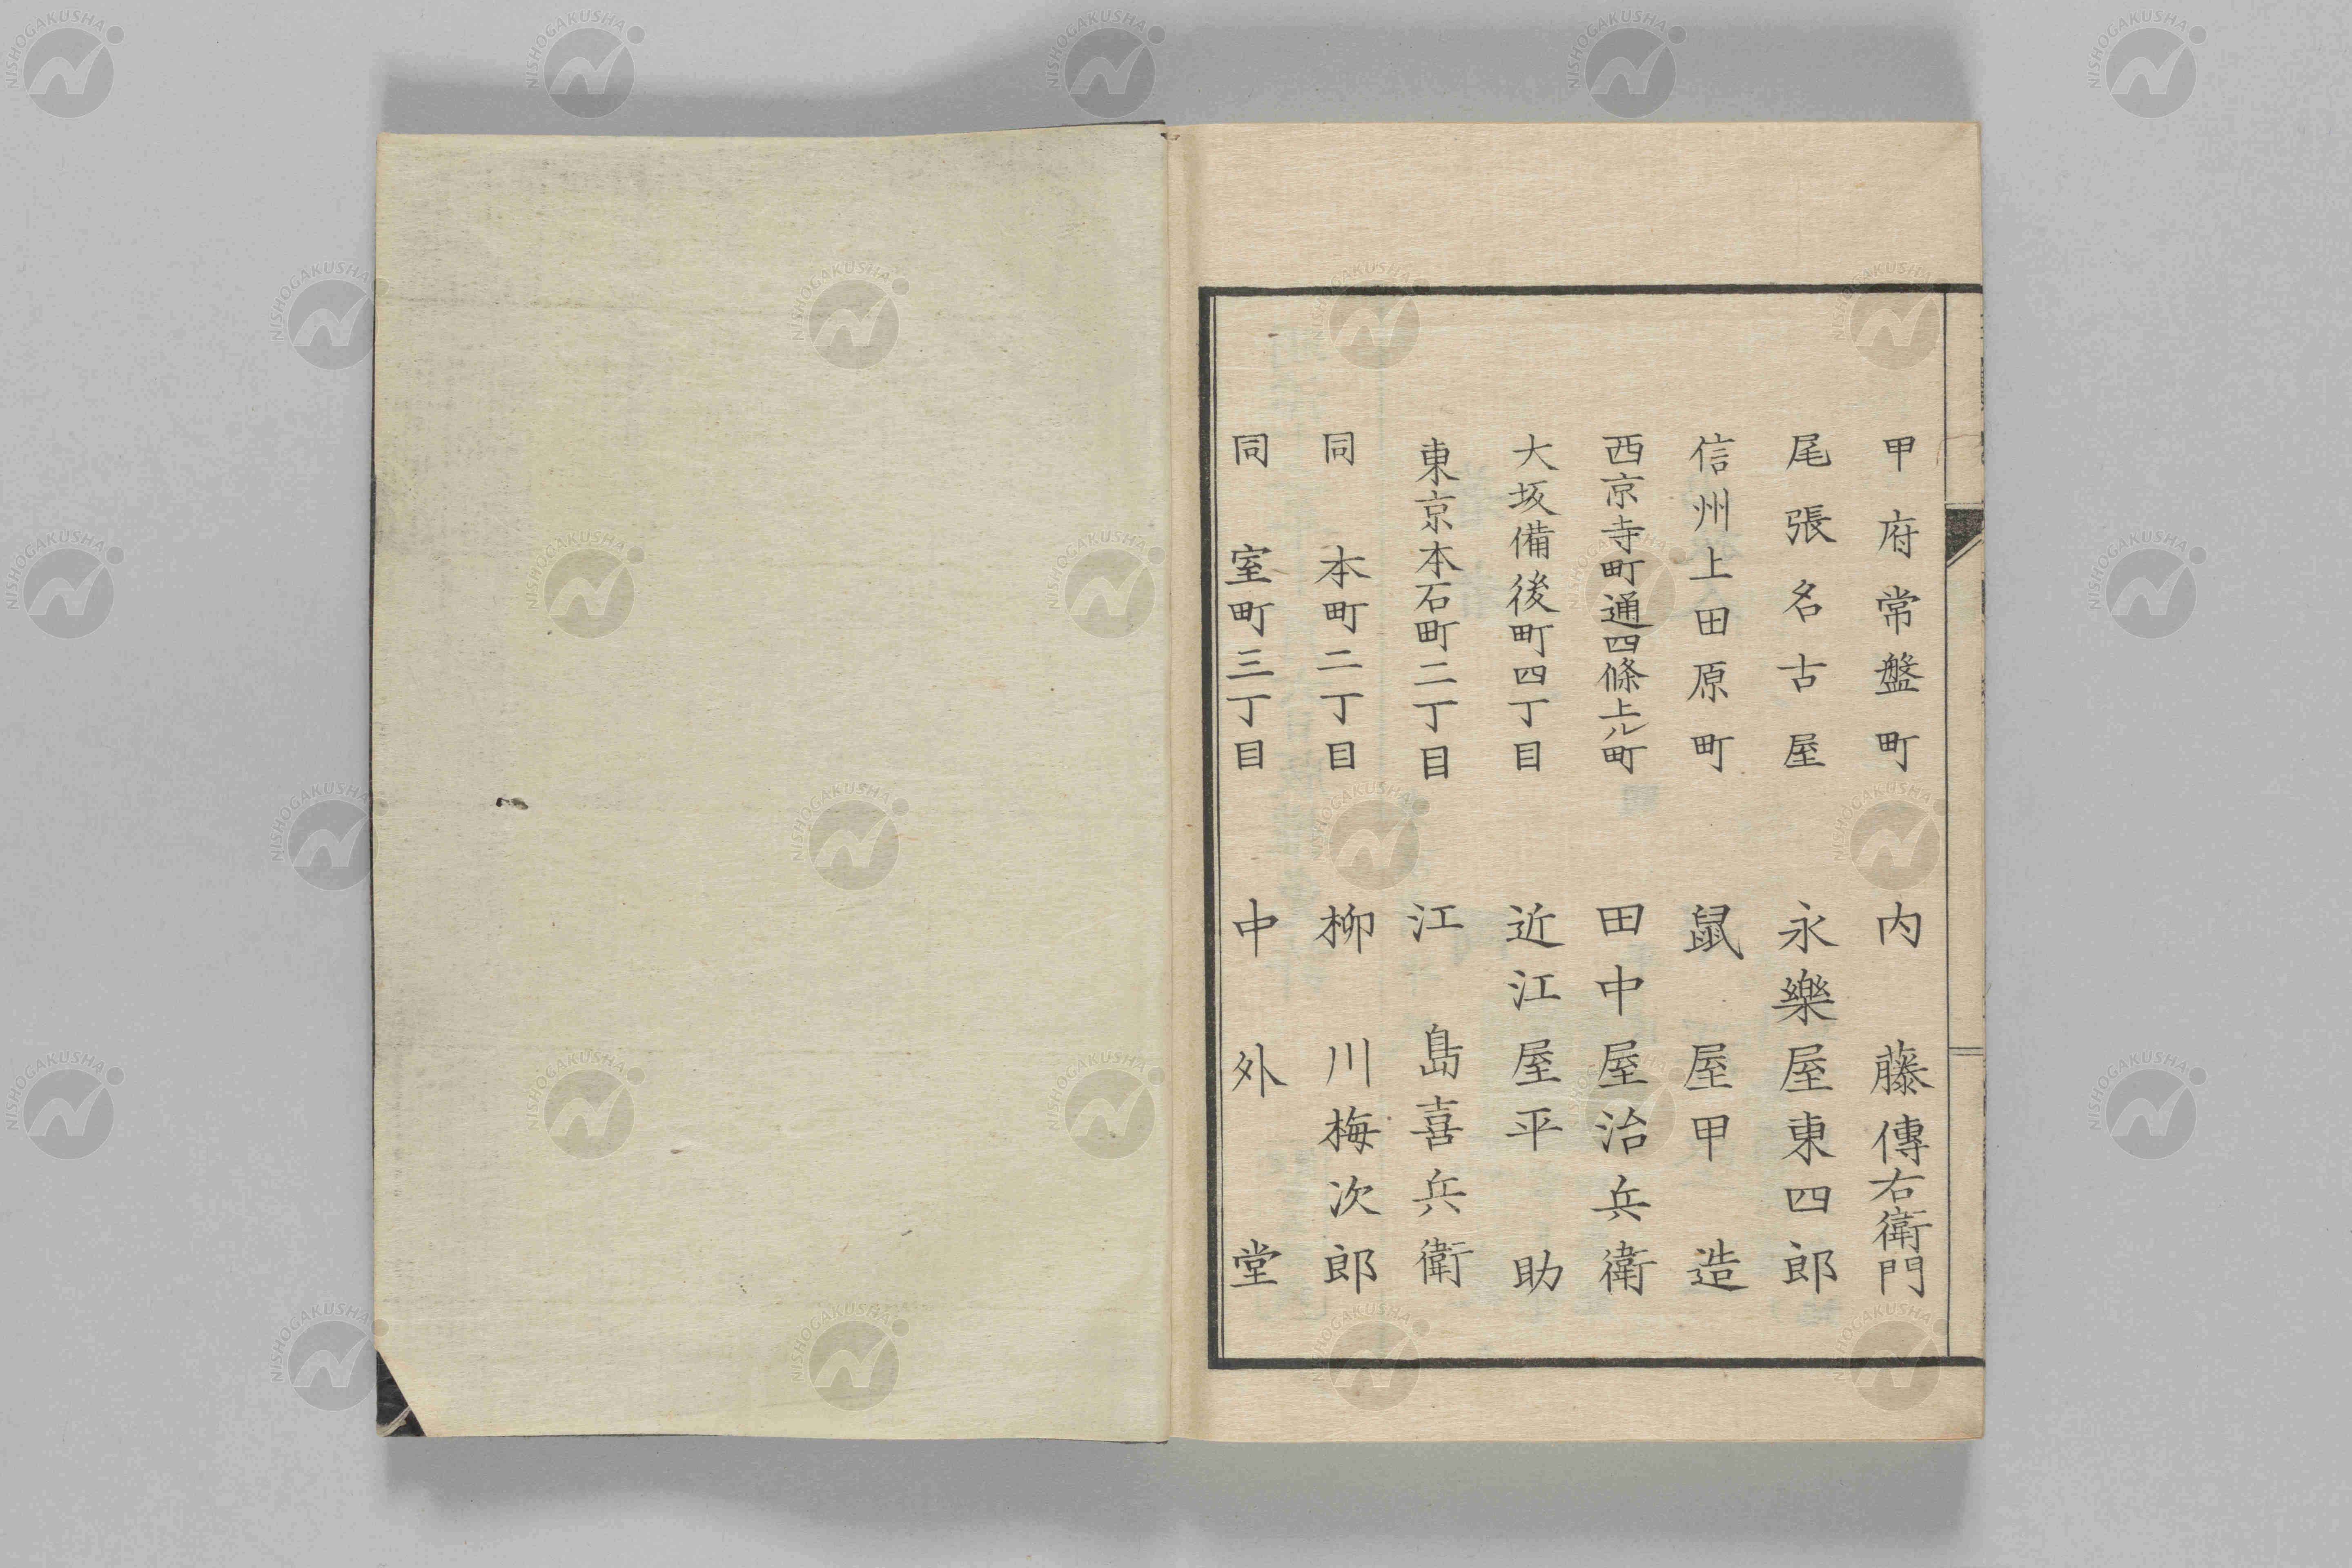 甲府常盤町　内藤傳右衛門
尾張名古屋　永樂屋東四郎
信州上田原町　鼠屋甲造
西京寺町通四條上ル町　田中屋治兵衛
大坂備後町四丁目　近江屋平助
東京本石町二丁目　江島喜兵衛
同　本町二丁目　柳川梅次郎
同　室町三丁目　中外堂
NISHOGAKUSHA